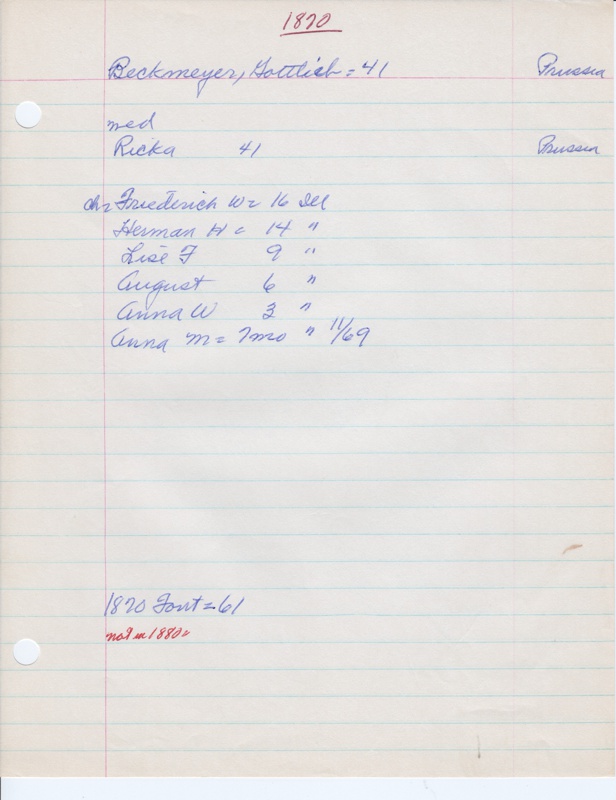 1870
Beckmeyer, Gottlieb = 41 Prussia
med
Ricka 41 Prussia
ch = Friederich W = 16 Ill
Herman H = 14 "
Lise F 9 "
August 6 "
Anna W 3 "
Anna M = 7mo " 11/69
1870 Font = 61
not in 1880 =